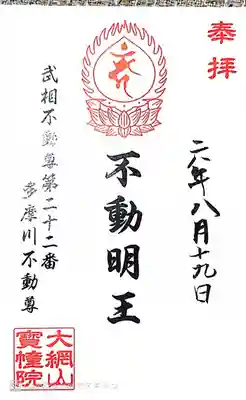 奉拝
二八年八月十九日
不動明王
武相不動尊第二十二番
多摩川不動尊
大網山
寶幢院